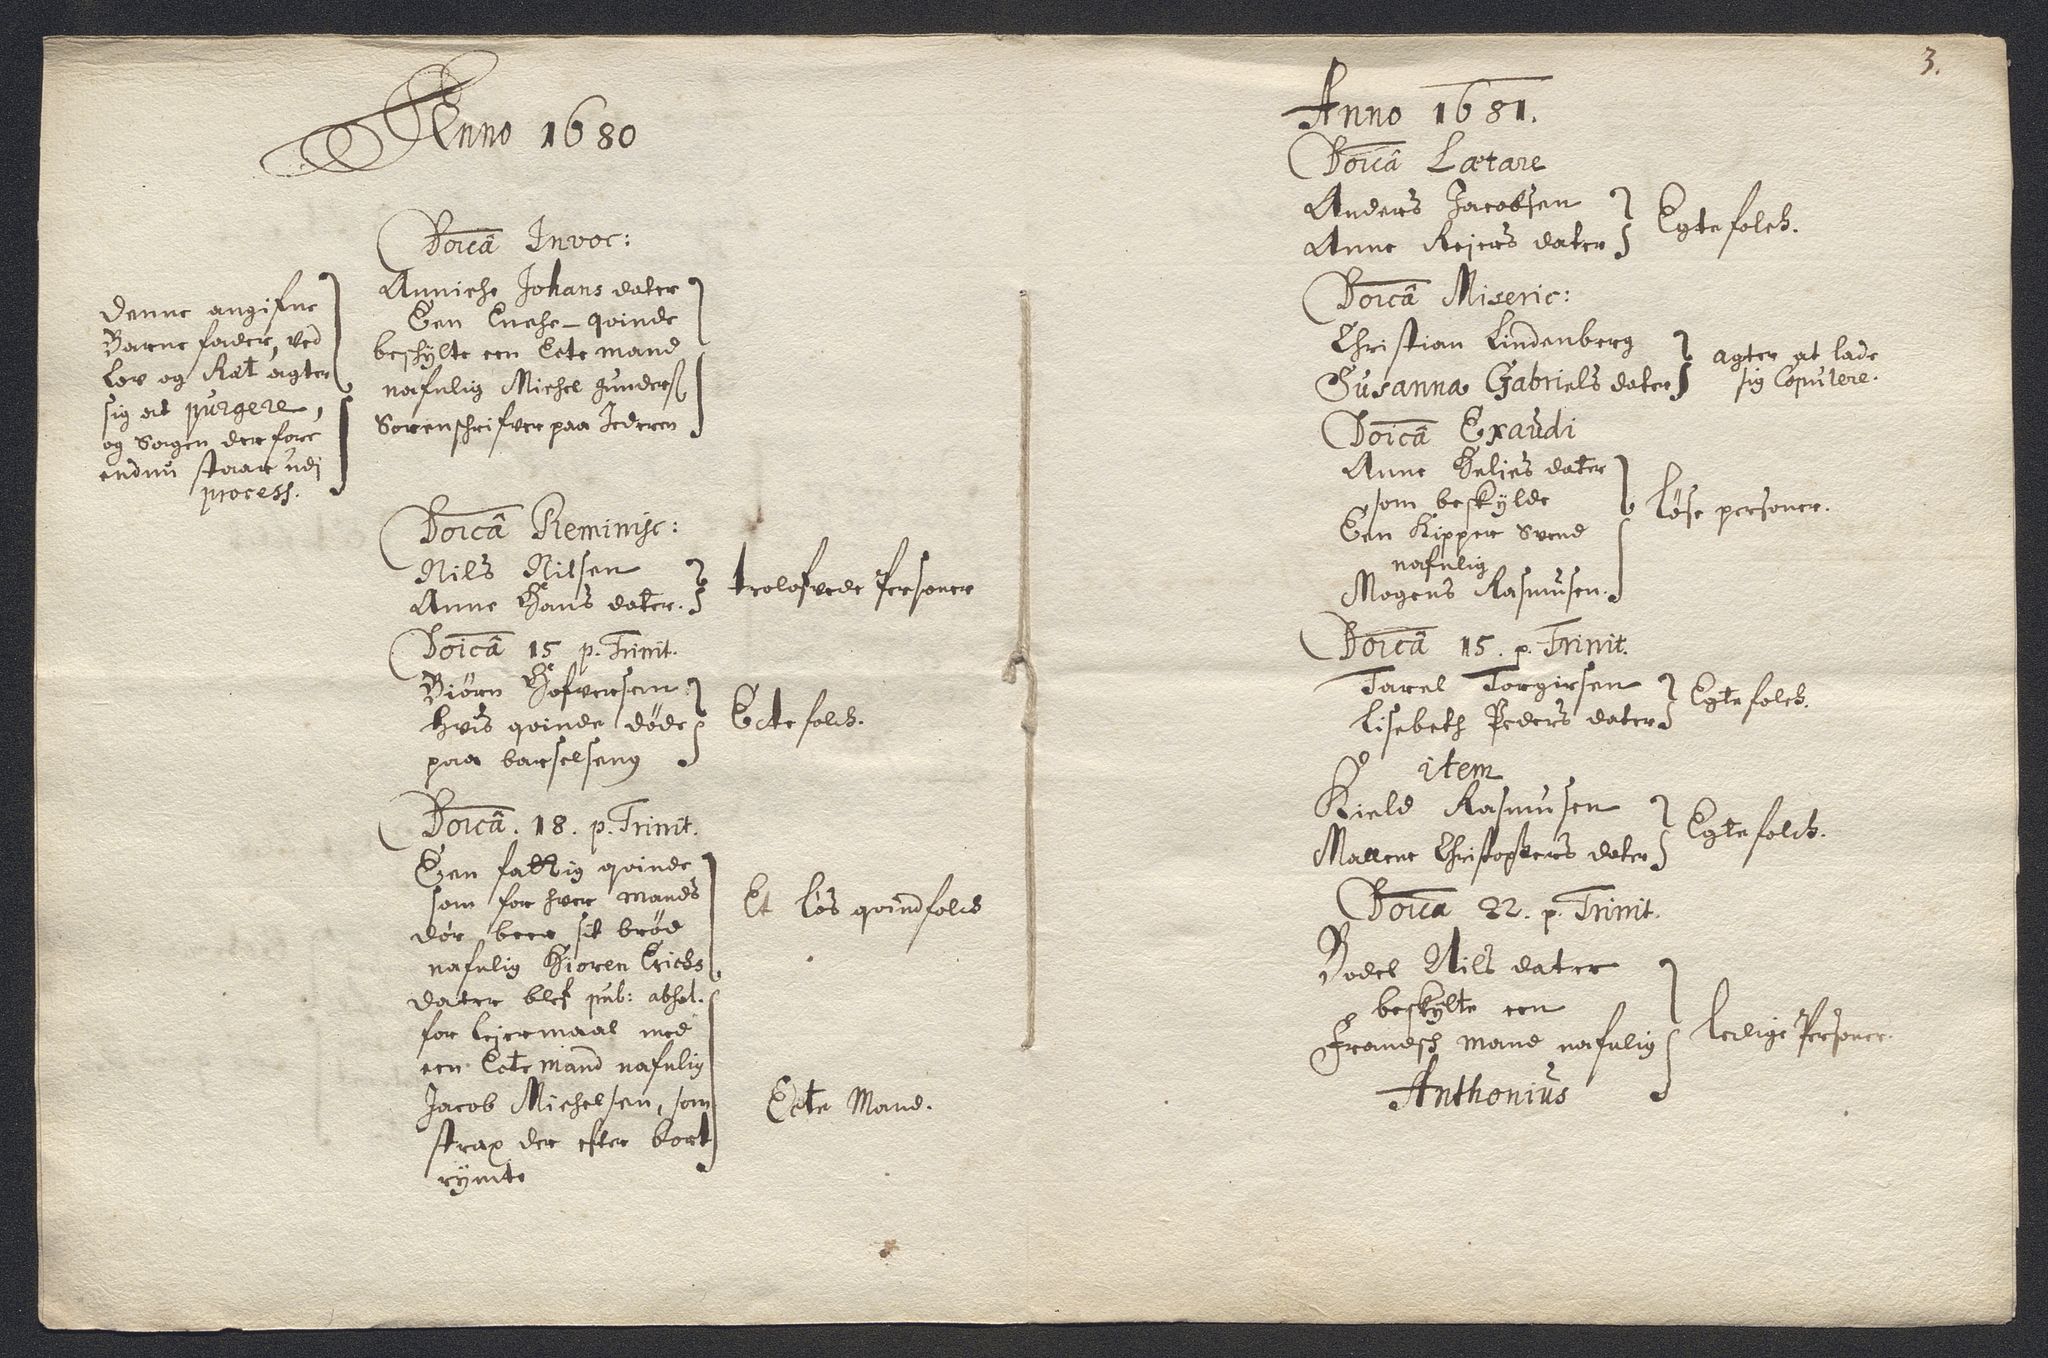 Anno 1680
Doīcâ Invoc:
Anniche Johans dater
Een Enche-qvinde
beskylte een Ecte mand
nafnlig Michel Gunders
Sorenschrifver paa Jederen
Denne angifne
Barne fader, ved
Lov og Ræt agter
sig at purgere,
og Sagen der fore
endnu staar udj
process.
Doīcâ Reminisc:
Nils Nilsen
Anne Hans dater.
trolofvede Personer
Doīcâ 15 p. Trinit.
Biørn Hofversen
hvis qvinde døde
paa barselseng
Ecte folch.
Doīcâ. 18. p. Trinit.
Een fattig qvinde
som for hver mands
dør beer sit brød
nafnlig Kioren Erichs
dater blef pub: absol.
for leiermaal med
een Ecte mand nafnlig
Jacob Michelsen, som
strax der efter bort
rÿmte
Et løs qvindfolch
Ecte Mand.
3.
Anno 1681.
Doīcâ Lætare
Anders Jacobsen
Anne Reiers dater
Egte folch.
Doīcâ Miseric:
Christian Lindenberg
Susanna Gabriels dater
agter at lade
sig Copulere.
Doīcâ Exaudi
Anne Helies dater
som beskylde
Een Kipper Svend
nafnlig
Mogens Rasmusen.
løse personer.
Doīcâ 15. p. Trinit.
Tarel Torgirsen
Lisebeth Peders dater
Egte folch.
item
Kield Rasmusen
Mallene Christophers dater
Egte folch.
Doīcâ 22. p. Trinit.
Bodel Nils dater
beskylte een
Frandsch mand nafnlig
Anthonius
ledige Personer.